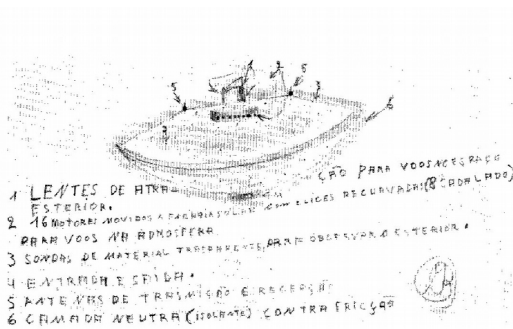 1 LENTES DE ATRA ÇÃO PARA VOOS
ESTERIOR.
2 16 MOTORES MOVIDOS A ENERGIA SOLAR COM ELICES RECURVADAS (8 CADA LADO)
PARA VOOS NA ADMOSFERA
3 SONDAS DE MATERIAL TRASPARENTE, PARA OBSERVAR O ESTERIOR.
4 ENTRADA E SAÍDA.
5 ANTENAS DE TRASMIÇÃO E RECEÇÃO
6 CAMADA NEUTRA (ISOLANTE) CONTRA FRICÇÃO
1
2
5
5
3
3
6